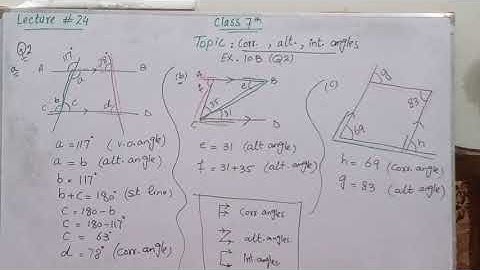 Lecture # 24
Class 7th
Topic : Corr., alt., int. angles
EX. 10B (Q2)
Q2
a)
117°
78°
A
B
a
b
c
d
C
D
a = 117° (v.o.angle)
a = b (alt. angle)
b = 117°
b + c = 180° (st line)
c = 180 - b
c = 180 - 117°
c = 63°
d = 78° (corr. angle)
(b)
A
B
e
f
35
31
C
D
e = 31 (alt angles)
f = 31 + 35 (alt angles)
Corr angles
alt. angles
Int. angles
(c)
g
83
69
h
h = 69 (corr. angle)
g = 83 (alt angle)